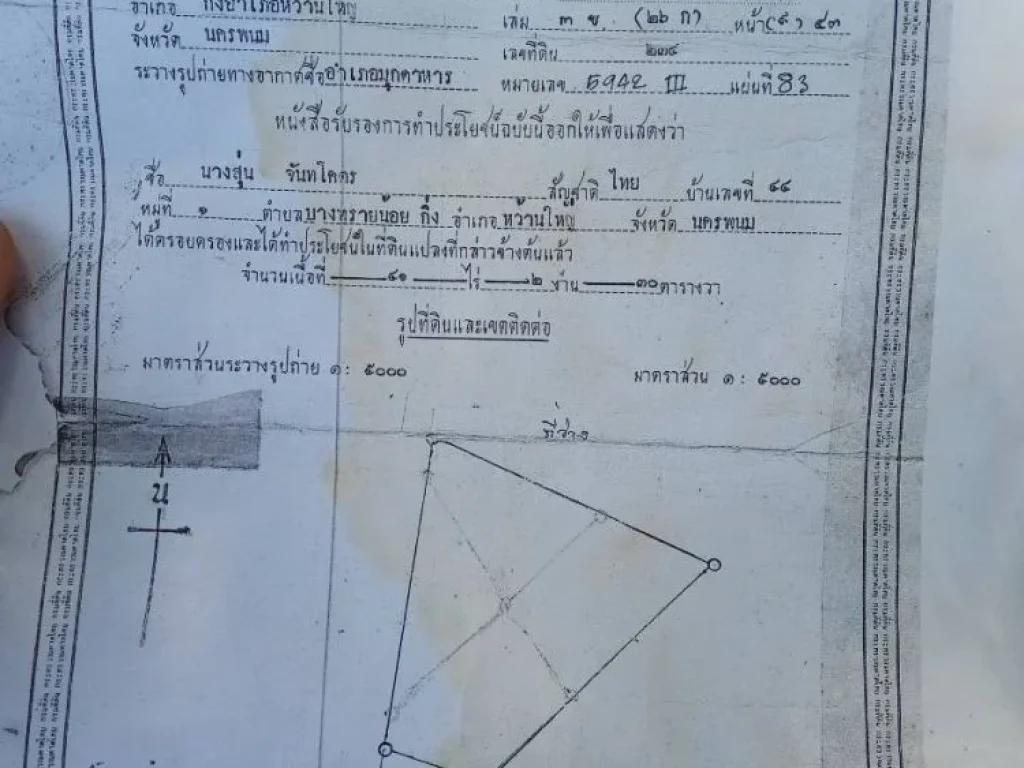 อำเภอ กิ่งอำเภอหว้านใหญ่ เล่ม ๓ ข. (๒๖ ก) หน้า(๙) ๔๓
จังหวัด นครพนม เลขที่ดิน ๒๓๔
ระวางรูปถ่ายทางอากาศชื่ออำเภอมุกดาหาร หมายเลข 5942 III แผ่นที่ 83
หนังสือรับรองการทำประโยชน์ฉบับนี้ออกให้เพื่อแสดงว่า
ชื่อ นางสุ่น จันทโคตร สัญชาติ ไทย บ้านเลขที่ ๔๔
หมู่ที่ ๑ ตำบลบางทรายน้อย กิ่ง อำเภอ หว้านใหญ่ จังหวัด นครพนม
ได้ครอบครองและได้ทำประโยชน์ในที่ดินแปลงที่กล่าวข้างต้นแล้ว
จำนวนเนื้อที่ ๔๑ ไร่ ๒ งาน ๓๐ ตารางวา
รูปที่ดินและเขตติดต่อ
มาตราส่วนระวางรูปถ่าย ๑ : ๕๐๐๐ มาตราส่วน ๑ : ๕๐๐๐
ที่ว่าง
น